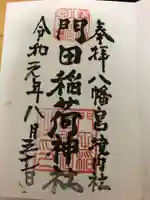 奉拝八幡宮境内社
門田稲荷神社
令和元年八月